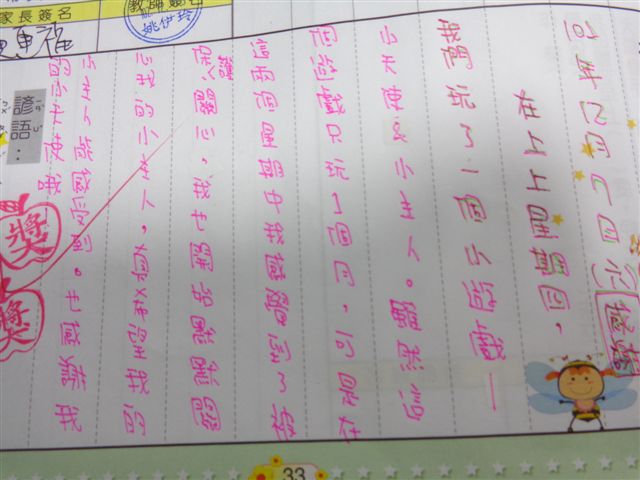 年12月7日(六) 感謝
在上上星期四，
我們玩了一個小遊戲—
小天使 小主人。雖然
個遊戲只玩了個 ，可
這兩個星期中我感覺到了被
保護關心，我也開始默默關
心我的小主人，真希望我的
小主人能感受到。也感謝我
的小天使哦
諺語：
獎
獎
家長簽名
教師簽名
姚伊玲
33